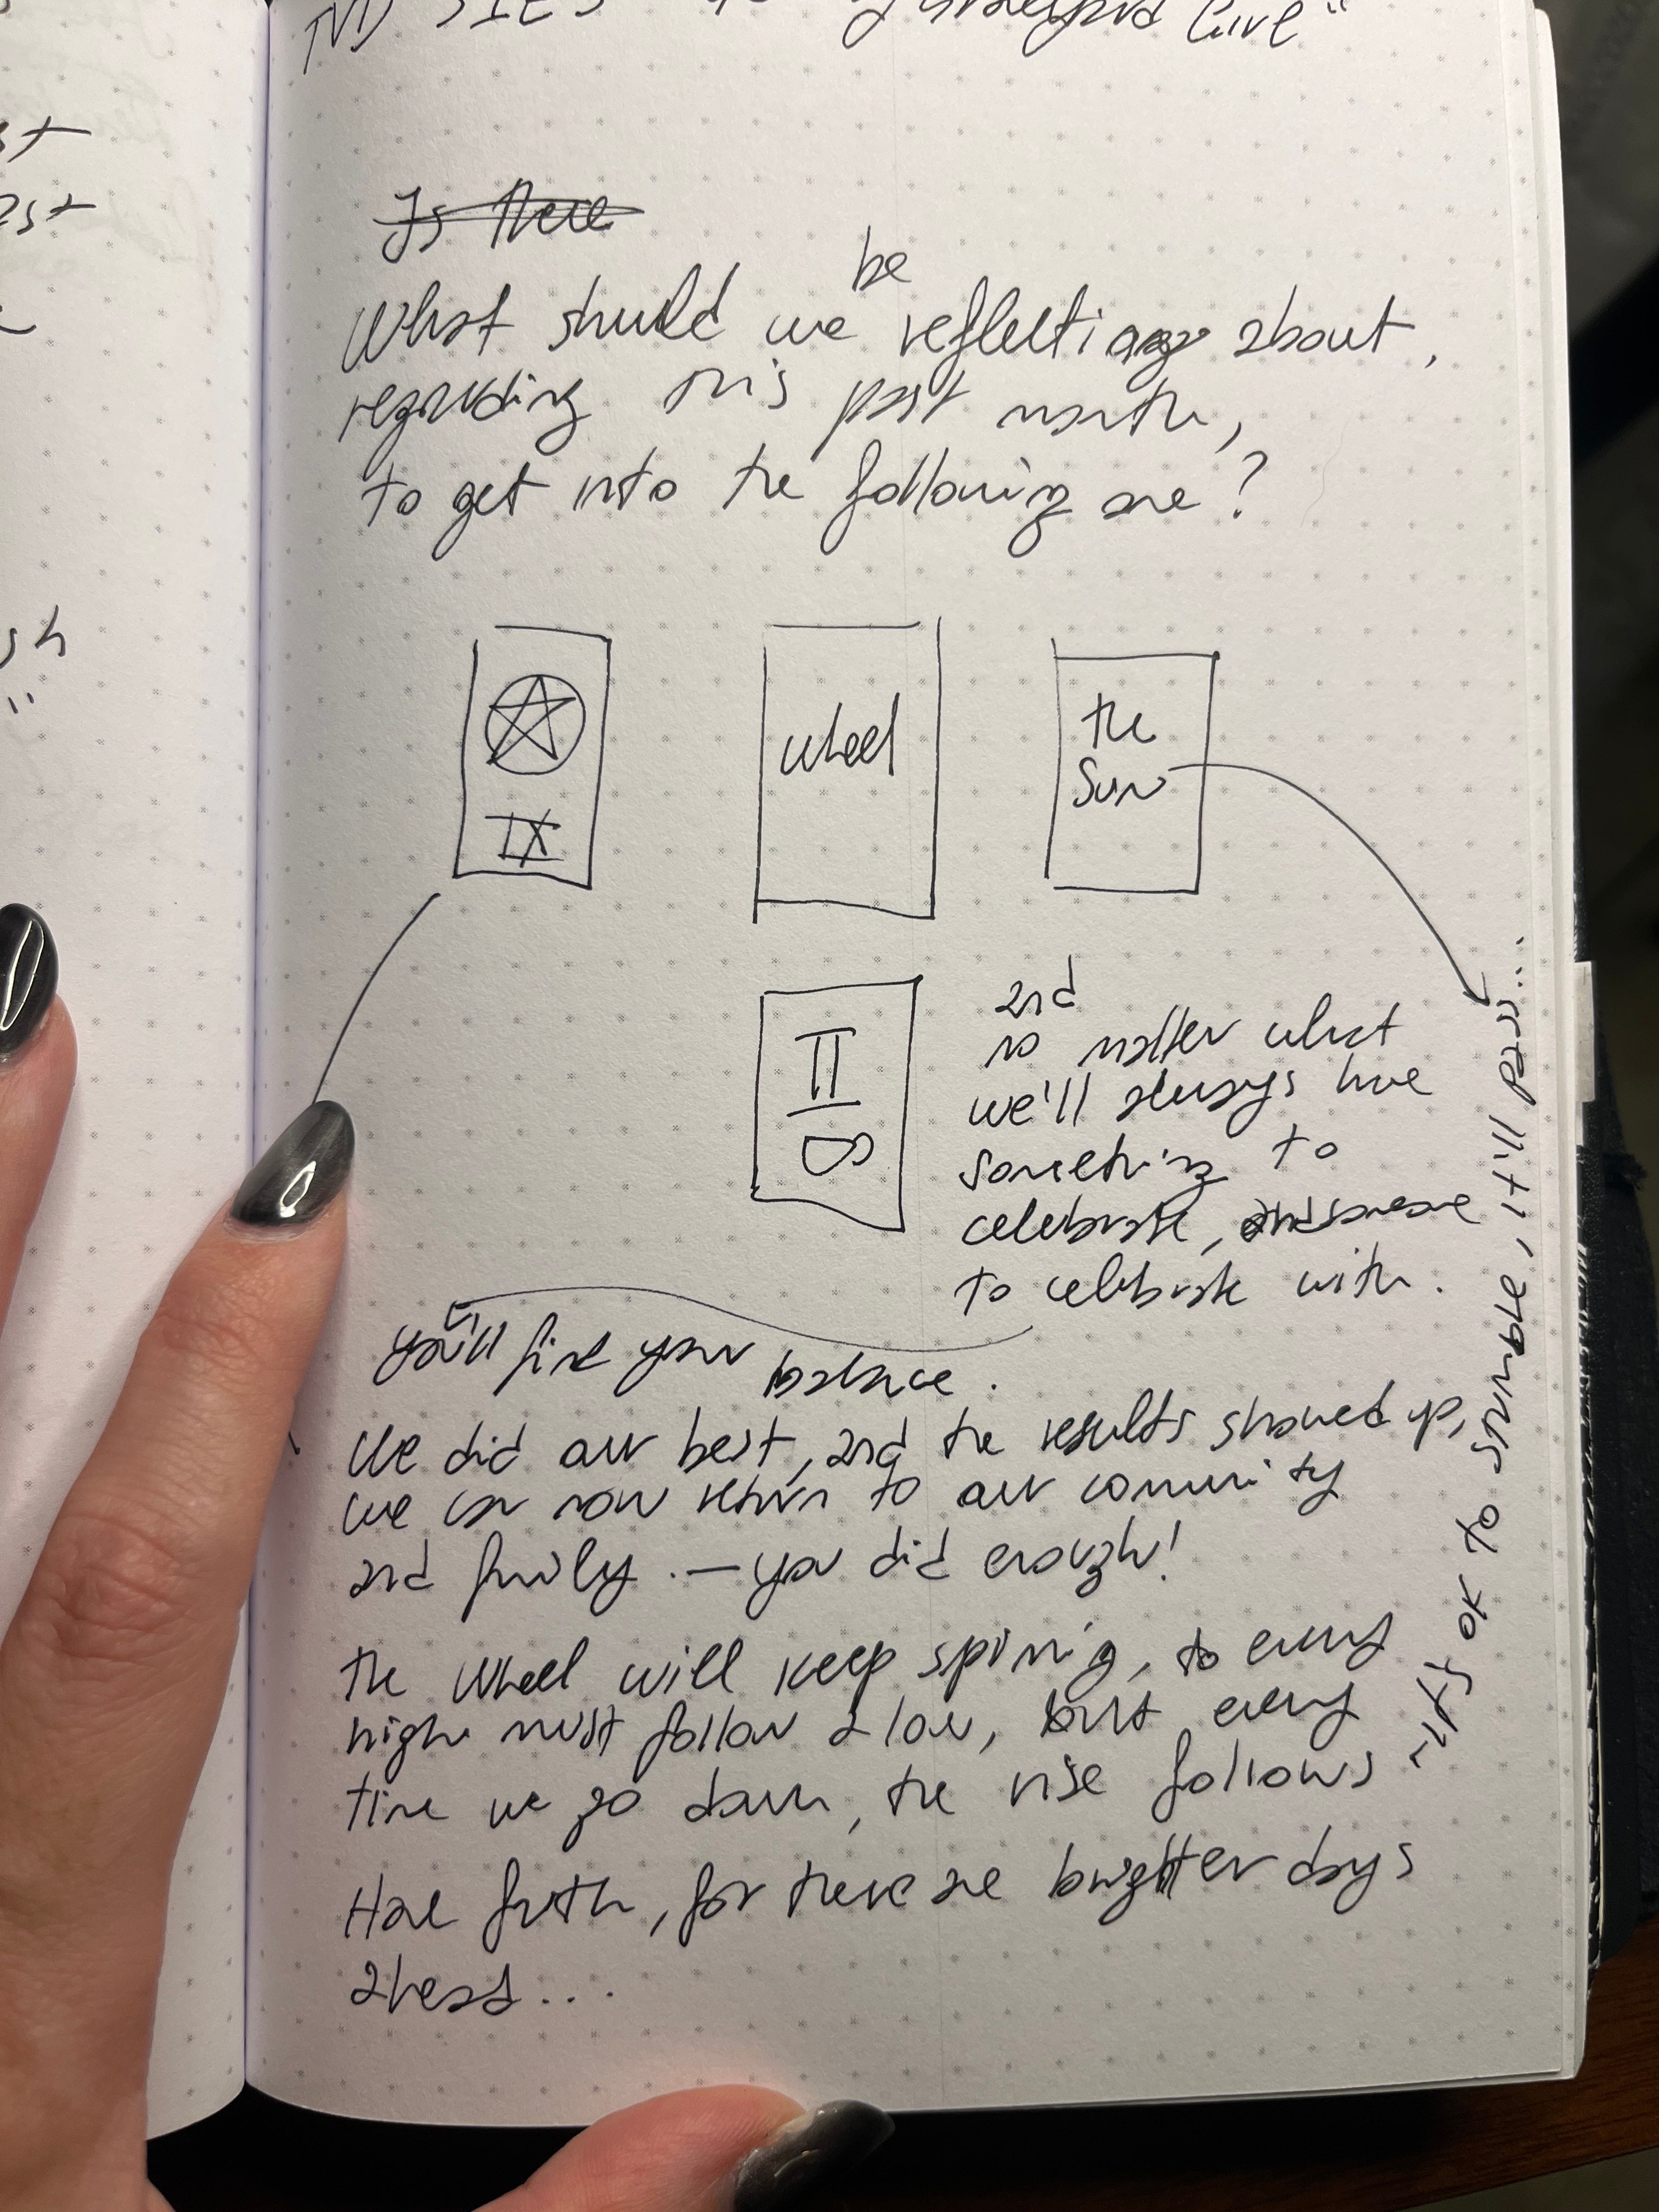 live"
st
Is there
be
What should we reflecting about,
regarding this past month,
to get into the following one?
IX
Wheel
the
Sun
II
and
no matter what
we'll always have
something to
celebrate, and someone
to celebrate with.
"it's ok to stumble, it'll pass...
you'll find your balance.
We did our best, and the results showed up,
we can now return to our community
and family. — you did enough!
The Wheel will keep spining, to every
high must follow a low, but every
time we go down, the rise follows
Have faith, for there are brighter days
ahead...